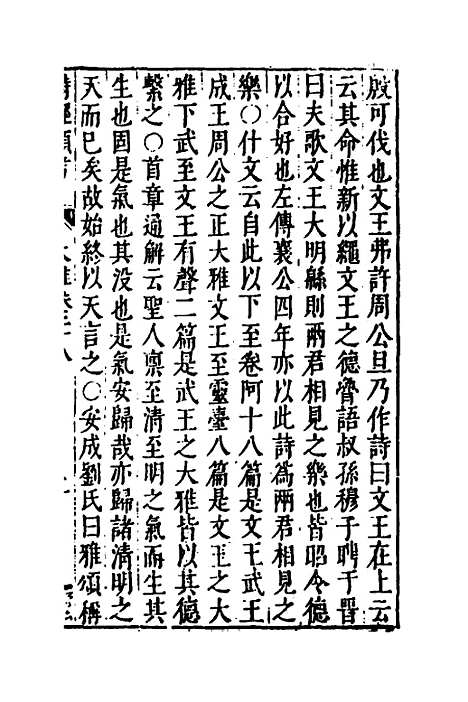 殷可伐也文王弗許周公旦乃作詩曰文王在上云
云其命惟新以繩文王之德魯語叔孫穆子聘于晉
曰夫歌文王大明緜則兩君相見之樂也皆昭令德
以合好也左傳襄公四年亦以此詩爲兩君相見之
樂○什文云自此以下至卷阿十八篇是文王武王
成王周公之正大雅文王至靈臺八篇是文王之大
雅下武至文王有聲二篇是武王之大雅皆以其德
繫之○首章通解云聖人禀至清至明之氣而生其
生也固是氣也其没也是氣安歸哉亦歸諸清明之
天而已矣故始終以天言之○安成劉氏曰雅頌稱
大雅卷二十八